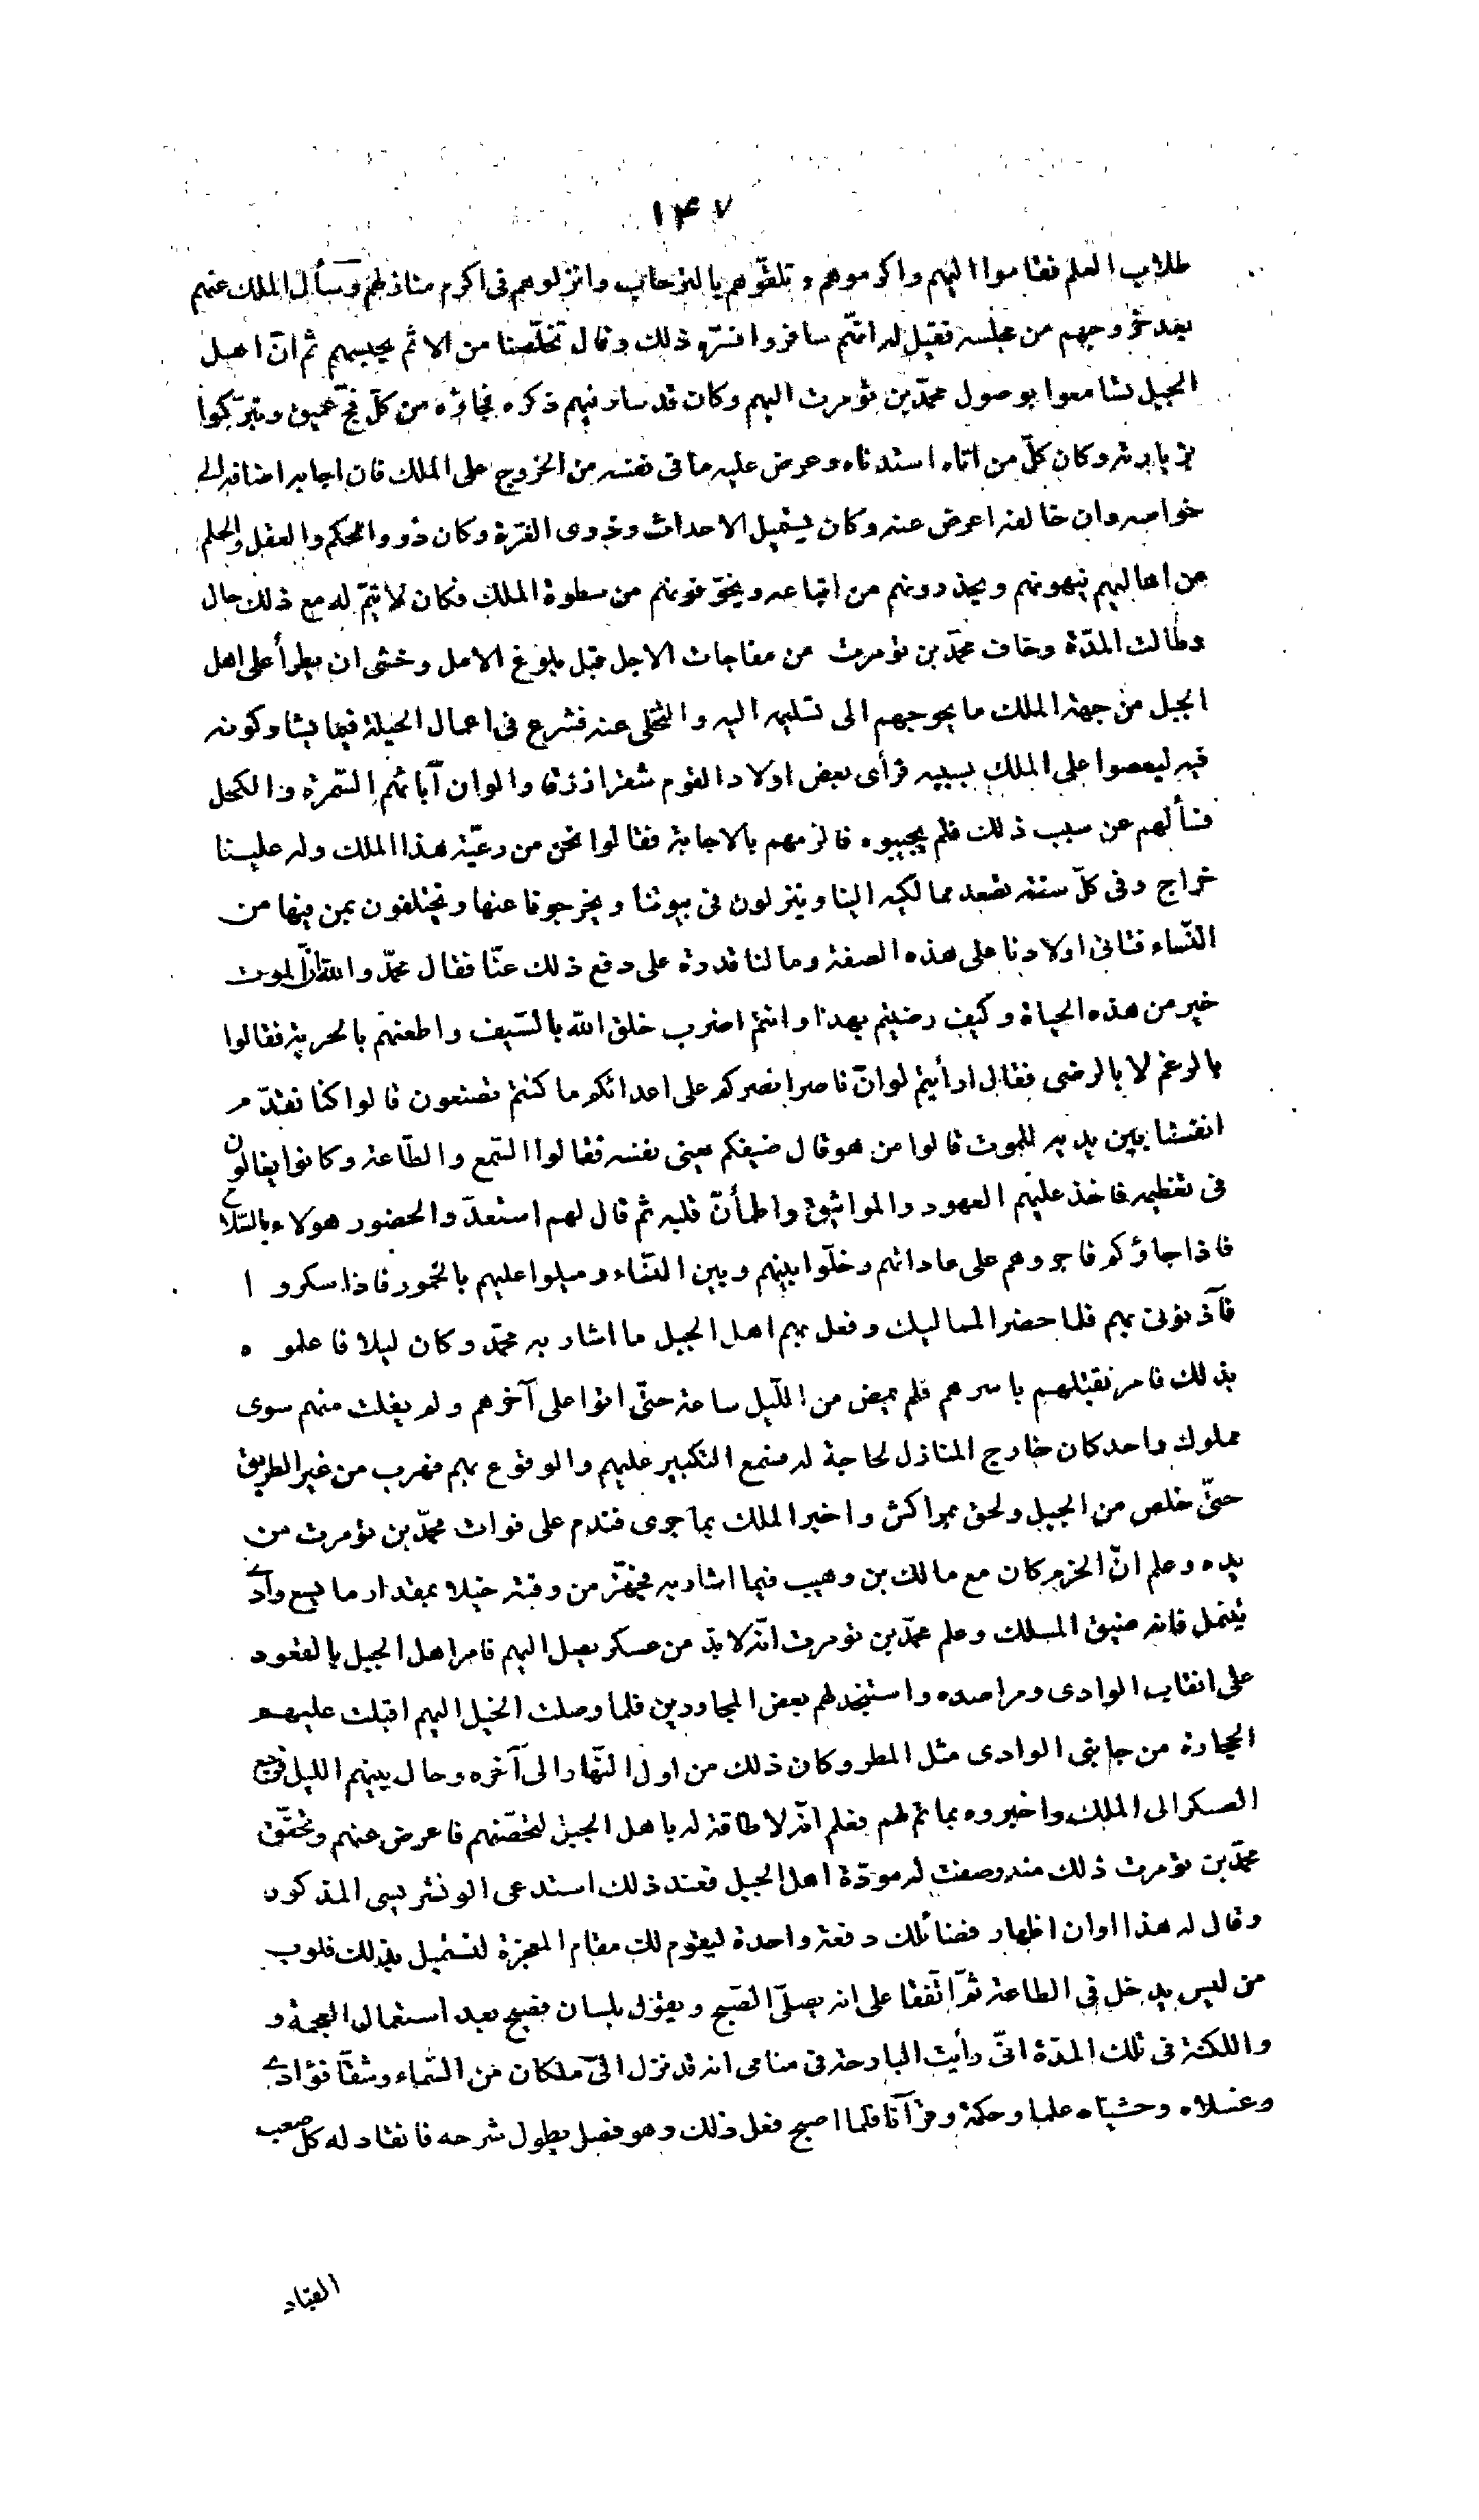 ۱۴۷
طلاب العلم فقاموا اليهم واكرموهم وتلقّوهم بالترحاب وانزلوهم فى اكرم منازلهم وسأل الملك عنهم
بعد خروجهم من مجلسه فقيل له انّهم سافروا فسرّه ذلك وقال تخلّصنا من الاثم بحبسهم ثم انّ اهل
الجبل تسامعوا بوصول محمّد بن تومرت اليهم وكان قد سار فيهم ذكره فجاؤه من كلّ فجّ عميق وتبرّكوا
بزيارته وكان كلّ من اتاه استدناه وعرض عليه ما فى نفسه من الخروج على الملك فان اجابه اضافه الى
خواصه وان خالفه اعرض عنه وكان يستميل الاحداث وذوى الغرّة وكان ذووا الحكم والعقل والحلم
من اهاليهم ينهونهم ويحذرونهم من اتباعه ويخوّفونهم من سطوة الملك فكان لا يتمّ له مع ذلك حال
وطالت المدّة وخاف محمّد بن تومرت من مفاجات الاجل قبل بلوغ الامل وخشى ان يطرأ على اهل
الجبل من جهة الملك ما يحوجهم الى تسليمه اليه والتخلى عنه فشرع فى اعمال الحيلة فيما يشاركونه
فيه ليعصوا على الملك بسببه فرأى بعض اولاد القوم شقرا زرقا والوان آبائهم السّمرة والكحل
فسألهم عن سبب ذلك فلم يجيبوه فالزمهم بالاجابة فقالوا نحن من رعيّة هذا الملك وله علينا
خراج وفى كلّ سنة تصعد مماليكه الينا وينزلون فى بيوتنا ويخرجونا عنها ويختلفون بمن فيها من
النّساء فتاتى اولادنا على هذه الصفة وما لنا قدرة على دفع ذلك عنّا فقال محمّد والله انّ الموت
خير من هذه الحياة وكيف رضيتم بهذا وانتم اضرب خلق الله بالسّيف واطعنهم بالحربة فقالوا
بالرغم لا بالرضى فقال ارأيتم لو انّ ناصرا نصركم على اعدائكم ما كنتم تصنعون قالوا كنّا نقدّم
انفسنا بين يديه للموت قالوا من هو قال ضيفكم يعنى نفسه فقالوا السّمع والطّاعة وكانوا يغالون
فى تعظيمه فاخذ عليهم العهود والمواثيق واطمأنّ قلبه ثم قال لهم استعدّوا لحضور هولاء بالسّلاح
فاذا جاؤكم فاجروهم على عاداتهم وخلّوا بينهم وبين النّساء وميلوا عليهم بالخمور فاذا سكروا
فآذنونى بهم فلما حضر المماليك وفعل بهم اهل الجبل ما اشار به محمّد وكان ليلا فاعلموه
بذلك فامر بقتلهم باسرهم فلم يمض من اللّيل ساعة حتّى اتوا على آخرهم ولم يفلت منهم سوى
مملوك واحد كان خارج المنازل لحاجة له فسمع التكبير عليهم والوقوع بهم فهرب من غير الطريق
حتّى خلص من الجبل ولحق بمراكش واخبر الملك بما جرى فندم على فوات محمّد بن تومرت من
يده وعلم انّ الحزم كان مع مالك بن وهيب فيما اشار به فجهّز من وقته خيلا بمقدار ما يسع وادى
تينمل فانه ضيق المسلك وعلم محمّد بن تومرت انّه لا بدّ من عسكر يصل اليهم فامر اهل الجبل بالقعود
على انقاب الوادى ومراصده واستنجد لهم بعض المجاورين فلما وصلت الخيل اليهم اقبلت عليهم
الحجارة من جانبى الوادى مثل المطر وكان ذلك من اول النّهار الى آخره وحال بينهم الليل فرجع
العسكر الى الملك واخبروه بما تم لهم فعلم انّه لا طاقة له باهل الجبل لتحصّنهم فاعرض عنهم وتحقّق
محمّد بن تومرت ذلك منه وصفت له مودّة اهل الجبل فعند ذلك استدعى الونشريسى المذكور
وقال له هذا اوان اظهار فضائلك دفعة واحدة ليقوم لك مقام المعجزة لنستميل بذلك قلوب
من ليس يدخل فى الطاعة ثمّ اتّفقا على انه يصلّى الصّبح ويقول بلسان فصيح بعد استعمال العجمة و
واللكنة فى تلك المدّة انّى رأيت البارحة فى منامى انه قد نزل الىّ ملكان من السّماء وشقّا فؤادى
وغسلاه وحشياه علما وحكمة وقرآنا فلما اصبح فعل ذلك وهو فصل يطول شرحه فانقاد له كل صعب
القياد